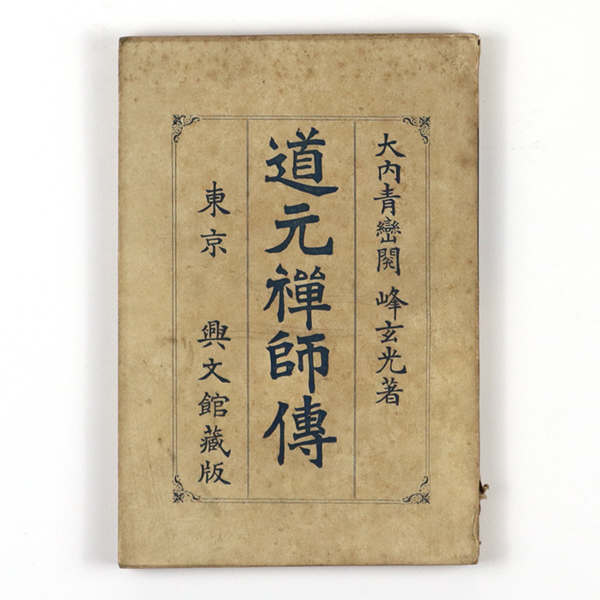 大内青巒閲 峰玄光著
道元禅師傳
東京 興文館藏版